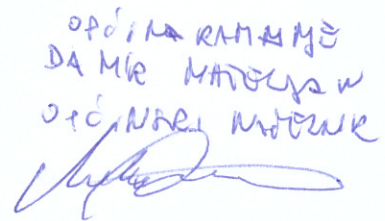 OPĆINA KAMANJE
DAMIR MATELJAN
OPĆINSKI NAČELNIK